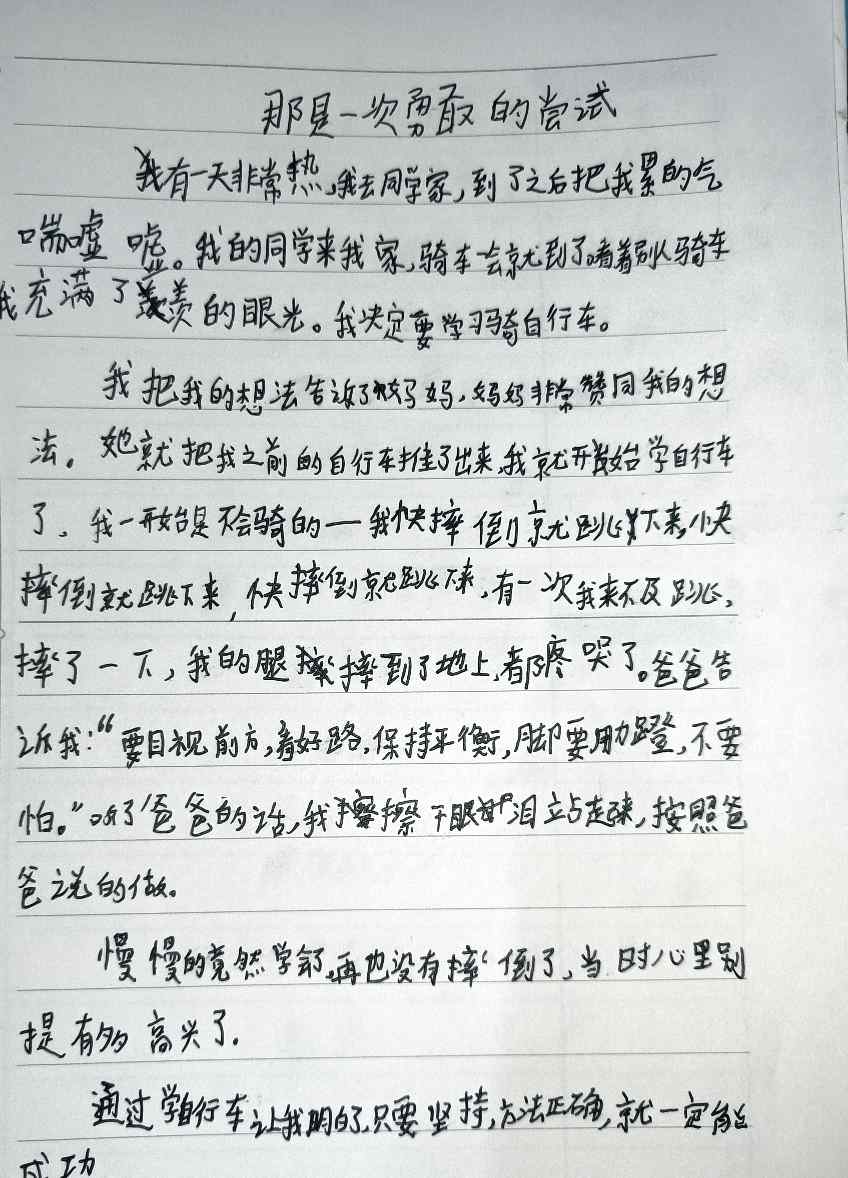 那是一次勇敢的尝试
我有一天非常热,我去同学家,到了之后把我累的气
喘嘘嘘。我的同学来我家,骑车一会就到了。看着别人骑车
我充满了羡的眼光。我决定要学习骑自行车。
我把我的想法告诉了妈妈,妈妈非常赞同我的想
法。她就把我之前的自行车推了出来,我就开始学自行车
了。我一开始是不会骑的一我快摔倒就跳下来,快
摔倒就跳下来,快摔倒就跳下来,有一次我来不及跳,
摔了一下,我的腿摔到了地上,都疼哭了。爸爸告
诉我:“要目视前方,看好路,保持平衡,脚要用力蹬,不要
怕。”听了爸爸的话,我擦干眼泪立站起来,按照爸
爸说的做。
慢慢的竟然学会了,再也没有摔倒了,当时心里别
提有多高兴了。
通过学自行车让我明白了,只要坚持,方法正确,就一定能
成功